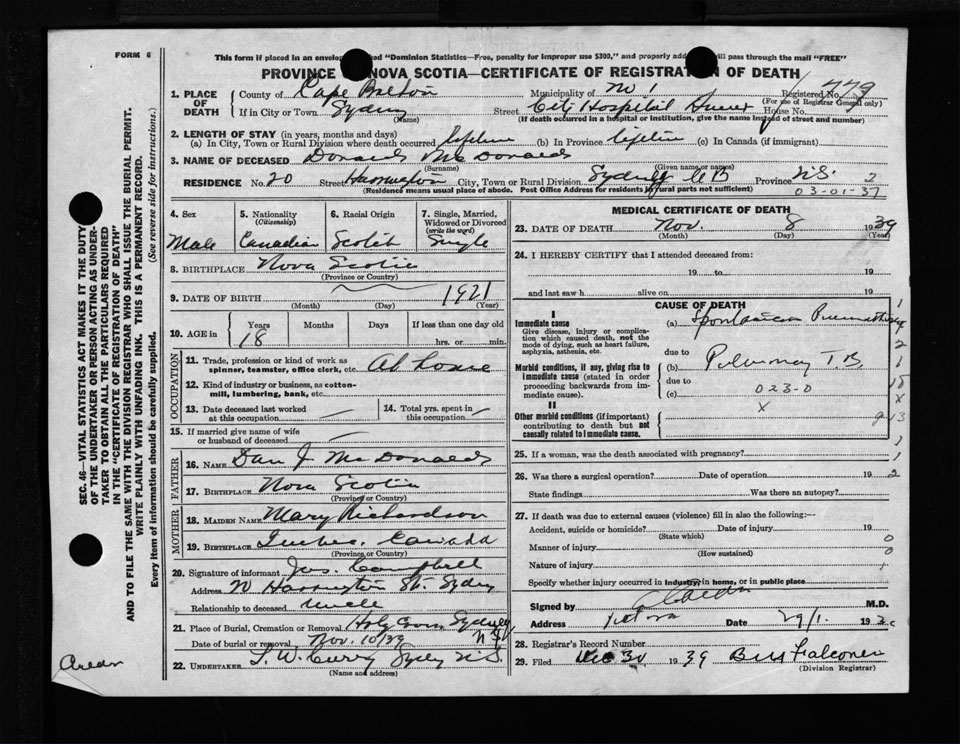 FORM 6
This form if placed in an envelop ked "Dominion Statistics—Free, penalty for improper use $300," and properly add will pass through the mail "FREE"
PROVINCE NOVA SCOTIA—CERTIFICATE OF REGISTRAT N OF DEATH
1. PLACE OF DEATH County of Cape Breton Municipality of No 1 Registered No. 779
(For use of Registrar General only)
If in City or Town Sydney (Name) Street City Hospital Annex House No.
(If death occurred in a hospital or institution, give the name instead of street and number)
2. LENGTH OF STAY (in years, months and days)
(a) In City, Town or Rural Division where death occurred lifetime (b) In Province lifetime (c) In Canada (if immigrant)
3. NAME OF DECEASED Donald McDonald
(Surname) (Given name or names)
RESIDENCE No. 20 Street Harrington City, Town or Rural Division Sydney C B Province N.S. 2
(Residence means usual place of abode. Post Office Address for residents in rural parts not sufficient) 03-01-37
4. Sex 5. Nationality (Citizenship) 6. Racial Origin 7. Single, Married, Widowed or Divorced (write the word)
Male Canadian Scotch Single
8. BIRTHPLACE Nova Scotia
(Province or Country)
9. DATE OF BIRTH 1921
(Month) (Day) (Year)
10. AGE in Years Months Days If less than one day old
18 hrs. or min.
OCCUPATION
11. Trade, profession or kind of work as spinner, teamster, office clerk, etc. At home
12. Kind of industry or business, as cotton-mill, lumbering, bank, etc.
13. Date deceased last worked at this occupation 14. Total yrs. spent in this occupation
15. If married give name of wife or husband of deceased
FATHER
16. NAME Dan J McDonald
17. BIRTHPLACE Nova Scotia
(Province or Country)
MOTHER
18. MAIDEN NAME Mary Richardson
19. BIRTHPLACE Quebec Canada
(Province or Country)
20. Signature of informant Jos. Campbell
Address 20 Harrington St. Sydney
Relationship to deceased Uncle
21. Place of Burial, Cremation or Removal Holy Cross Sydney N.S.
Date of burial or removal Nov. 10/39
22. UNDERTAKER T. W. Curry Sydney N.S.
(Name and address)
MEDICAL CERTIFICATE OF DEATH
23. DATE OF DEATH Nov. 8 1939
(Month) (Day) (Year)
24. I HEREBY CERTIFY that I attended deceased from:
19 to 19
and last saw h alive on 19
CAUSE OF DEATH
I
Immediate cause
Give disease, injury or complication which caused death, not the mode of dying, such as heart failure, asphyxia, asthenia, etc.
(a) Spontaneous Pneumothorax
due to
Morbid conditions, if any, giving rise to immediate cause (stated in order proceeding backwards from immediate cause).
(b) Pulmonary T.B.
due to
(c) 023-0
X
II
Other morbid conditions (if important) contributing to death but not causally related to immediate cause.
25. If a woman, was the death associated with pregnancy?
26. Was there a surgical operation? Date of operation 19
State findings Was there an autopsy?
27. If death was due to external causes (violence) fill in also the following:—
Accident, suicide or homicide? Date of injury 19
(State which)
Manner of injury
(How sustained)
Nature of injury
Specify whether injury occurred in industry, in home, or in public place
Signed by M.D.
Address Date 29/1. 193
28. Registrar's Record Number
29. Filed Dec 30 1939 Falconer
(Division Registrar)
SEC. 46—VITAL STATISTICS ACT MAKES IT THE DUTY OF THE UNDERTAKER OR PERSON ACTING AS UNDERTAKER TO OBTAIN ALL THE PARTICULARS REQUIRED IN THE "CERTIFICATE OF REGISTRATION OF DEATH" AND TO FILE THE SAME WITH THE DIVISION REGISTRAR WHO SHALL ISSUE THE BURIAL PERMIT.
WRITE PLAINLY WITH UNFADING INK. THIS IS A PERMANENT RECORD.
Every item of information should be carefully supplied. (See reverse side for instructions.)